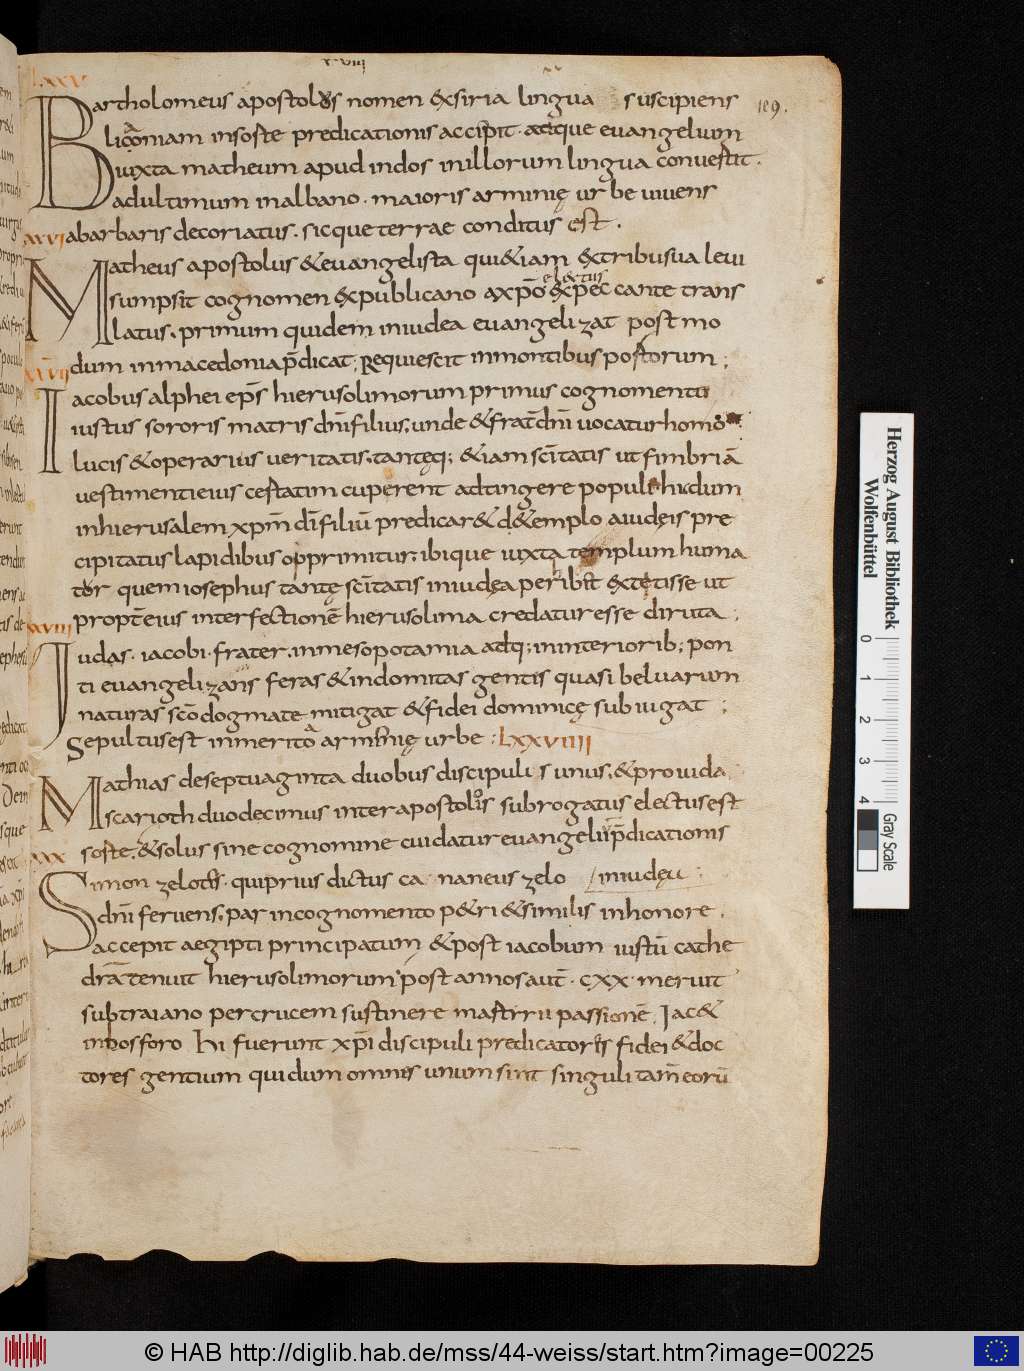 LXXV
Bartholomeus apostolus nomen exsiria lingua suscipiens 109.
licaoniam insorte predicationis accipit. adque euangelium
iuxta matheum apud indos inillorum lingua conuertit.
adultimum inalbano. maioris arminię urbe uiuens
abarbaris decoriatus. sicque terrae conditus est.
Matheus apostolus & euangelista qui & iam extribusua leui
sumpsit cognomen expublicano axpō electus
latus. primum quidem iniudea euangelizat post mo
LXXVII
dum inmacedonia p̄dicat; Requiescit inmontibus pastorum;
Iacobus alphei ep̄s hierusolimorum primus cognomento
iustus sororis matris dn̄i filius, unde & frat̄ dn̄i uocatur homo
lucis & operarius ueritatis. tantęq; & iam sc̄itatis ut fimbriā
uestimenti eius certatim cuperent adtingere populi hicdum
inhierusalem xpm̄ dī filiū predicar& d&emplo aiudęis pre
cipitatus lapidibus opprimitur; ibique iuxta templum huma
tur quem iosephus tantę sc̄itatis iniudęa
propt̄ eius interfectionē hierusolima credatur esse diruta;
Iudas. iacobi. frater. inmesopotamia adq; ininteriorib; pon
ti euangelizans feras & indomitas gentis quasi beluarum
naturas scō dogmate mitigat & fidei dominicę subiugat;
Sepultus est inmerito arminię urbe: LXXVIIII
Mathias deseptuaginta duobus discipulis unus, & pro iuda
scarioth duodecimus inter apostolos subrogatus electus est
LXXX
sorte, & solus sine cognomine cui datur euangelii p̄dicationis
Simon zelotis. qui prius dictus cananeus zelo iniudęu
dn̄i feruens, par incognomento p&ri & similis inhonore.
accepit aegipti principatum & post iacobum iustū cathe
dra tenuit hierusolimorum post annos aut̄. cxx. meruit
subtraiano per crucem sustinere passionē. Iac&
inbosforo Hi fuerunt xp̄i discipuli predicatoris fidei & doc
tores gentium qui dum omnis unum sint singuli tam̄ eorū
Herzog August Bibliothek
Wolfenbüttel
0 1 2 3 4
Gray Scale
© HAB http://diglib.hab.de/mss/44-weiss/start.htm?image=00225